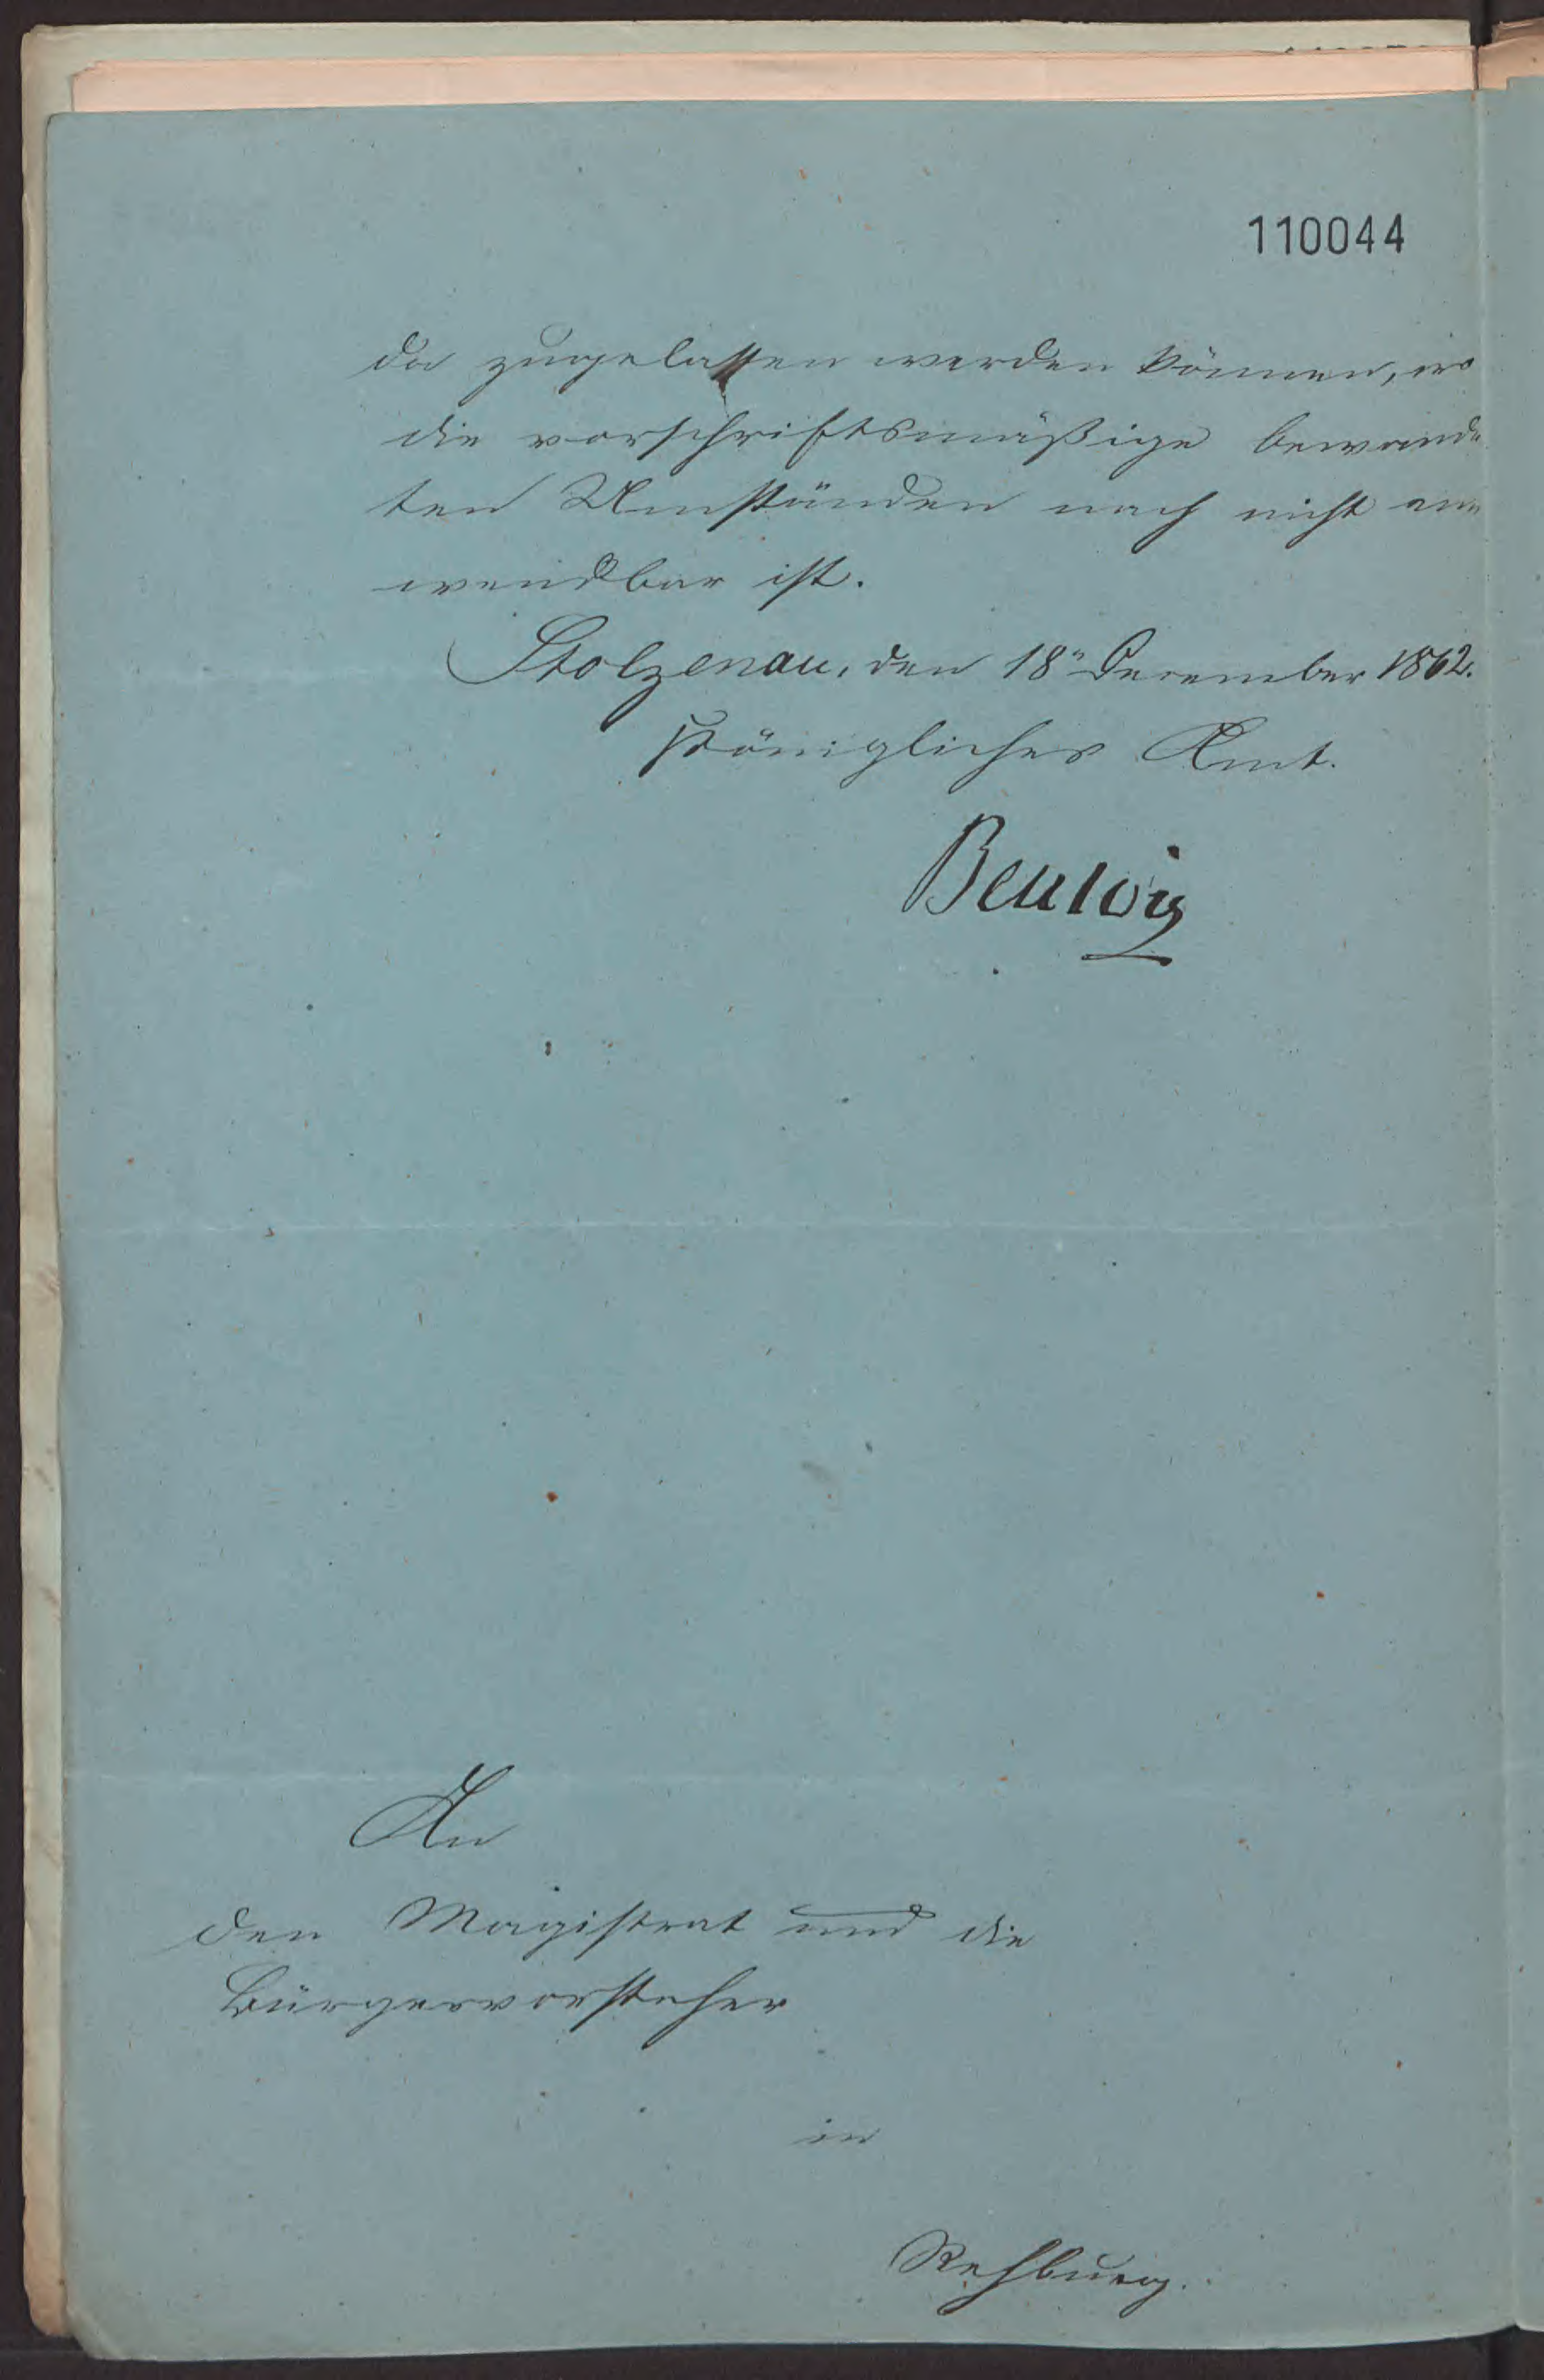 110044
da zugelassen werden können, wo
die vorschriftsmäßige bewand-
ten Umständen nach nicht an-
wendbar ist.
Stolzenau, den 18n December 1862.
Königliches Amt.
Beulwitz
An
den Magistrat und die
Bürgervorsteher
in
Rehburg.